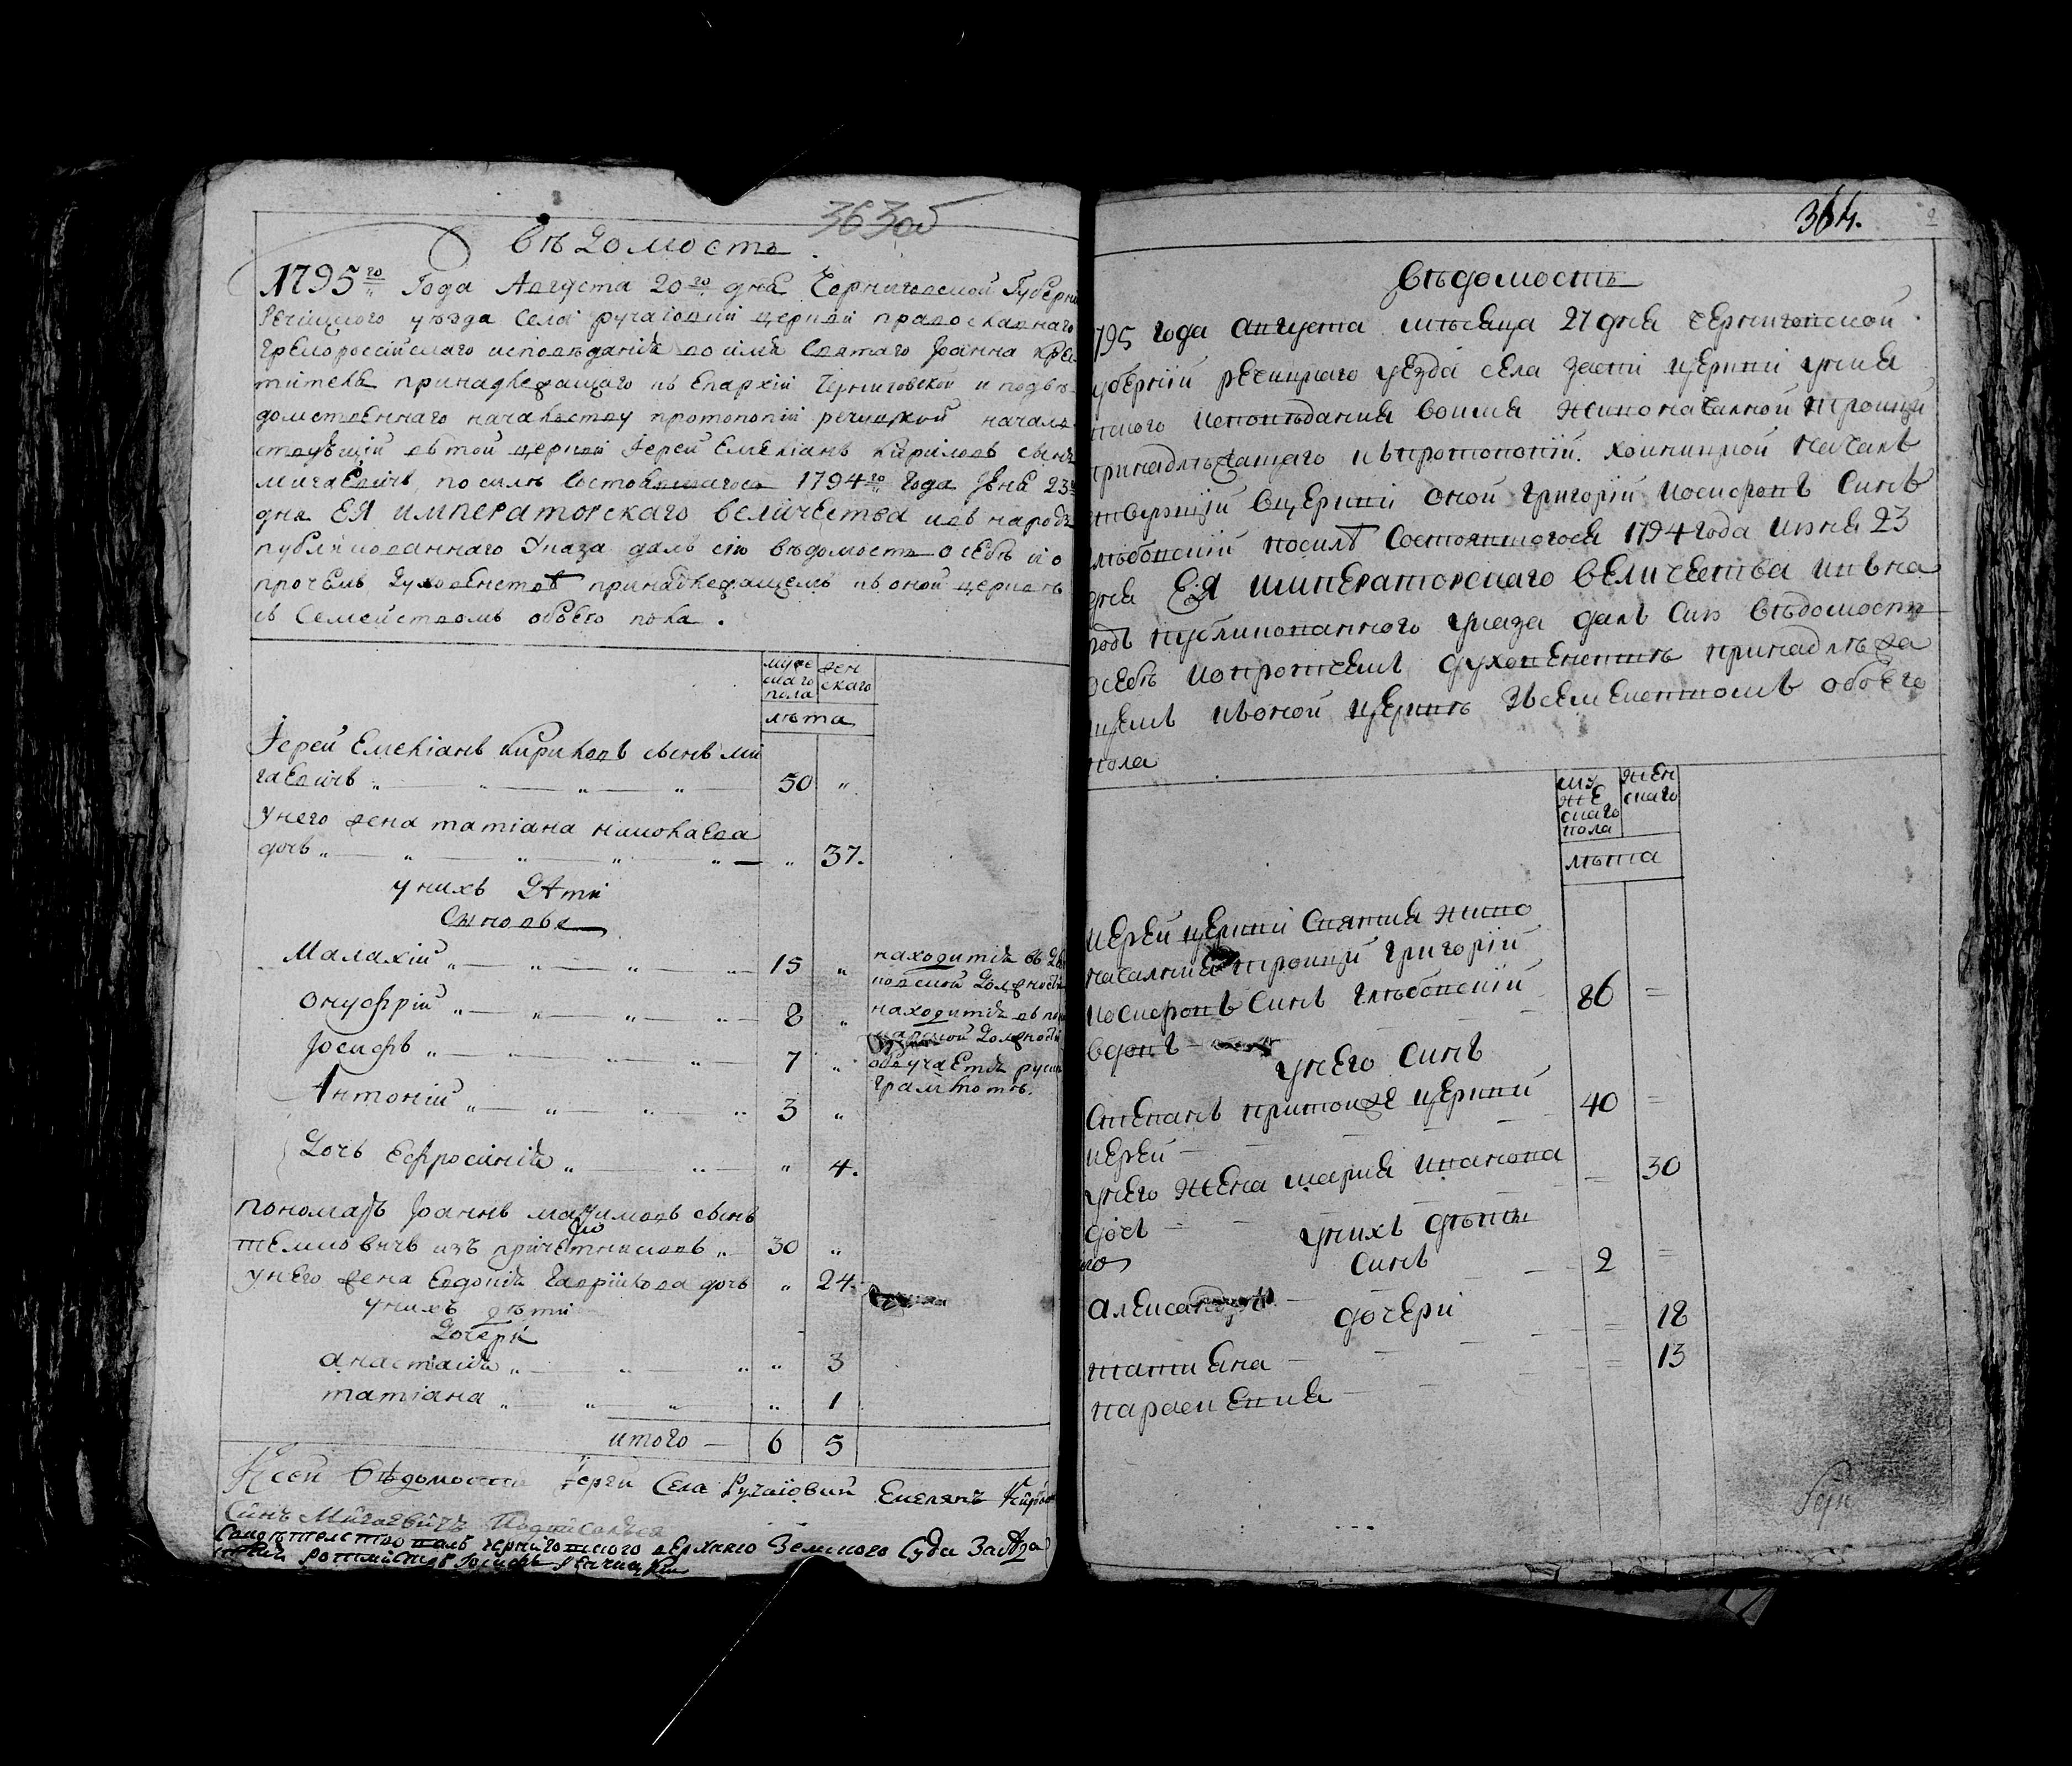 363об
вѣдомость
1795го Года Августа 20го дня Черниговской Губерній
Речицкого уѣзда Села ручаювки церкви православнаго
Грекороссійскаго исповѣданія во имя Святаго Іоанна Кре
тителя принадлежащаго къ Епархіи Черниговской и подвѣ
домственнаго началству протопопіи речицкой начал
ствующій въ той церкви Іерей Емеліанъ Кириловъ сынъ
мигаевичъ, по силѣ Состоявшагося 1794го Года Іюня 23го
дня ЕЯ императорскаго величества изъ народъ
публикованнаго Указа далъ сію вѣдомость о себѣ и о
прочемъ Духовенствѣ принадлежащемъ къ оной церквѣ
съ Семействомъ обоего пола.
муже скаго пола
жен скаго
лѣта
Іерей Емеліанъ Кириловъ сынъ ми
гаевичъ 50 "
У него жена татіана николаева
дочь " 37.
у нихъ Дѣти
Сыновья
Малахій 15 "
находится въ Дя
ковской Должности
онуфрій 8 "
находится въ по
марской Должности
Іосифъ 7 "
обучается руской
грамотѣ.
Антоній 3 "
Дочь Ефросинія " 4.
пономарь Іоаннъ максимовъ сынъ
30 "
у него жена Евдокія Гавріилова дочь " 24.
у нихъ дѣти
Дочери
анастасія " 3
татіана " 1
итого 6 5
К сей вѣдомости Іерей Села Ручаіовки Емелянъ Кирило
Синъ Мигаевичъ Подписалься
364.
вѣдомость
795 года августа мѣсяца 27 дня черниговской
губерніи речицкаго уезда села церкви унея
тского исповѣданія во имя живоначалной троици
принадлѣжащаго къ протопопій. хойницкой началь
ствующій в церкви оной григорій иосифовъ синъ
глѣбовскій посилѣ состоявшогося 1794 года июня 23
дня ЕЯ императорскаго величества и въ на
родъ публикованного указа далъ сию вѣдомость
о себѣ и о протчемъ духовенствѣ принадлѣжа
щемъ къ оной церквѣ зъ семейством обоего
пола
му же скаго пола
жен скаго
лѣта
иерей церкви святия живо
началния троици григорій
иосифовъ синъ глѣбовскій 86
вдовъ
у него синъ
Степанъ при той же церкви 40
иерей
у него жена мария иванова 30
дочь
у нихъ дѣти
синъ 2
александръ
дочери
татияна 18
параскевия 13